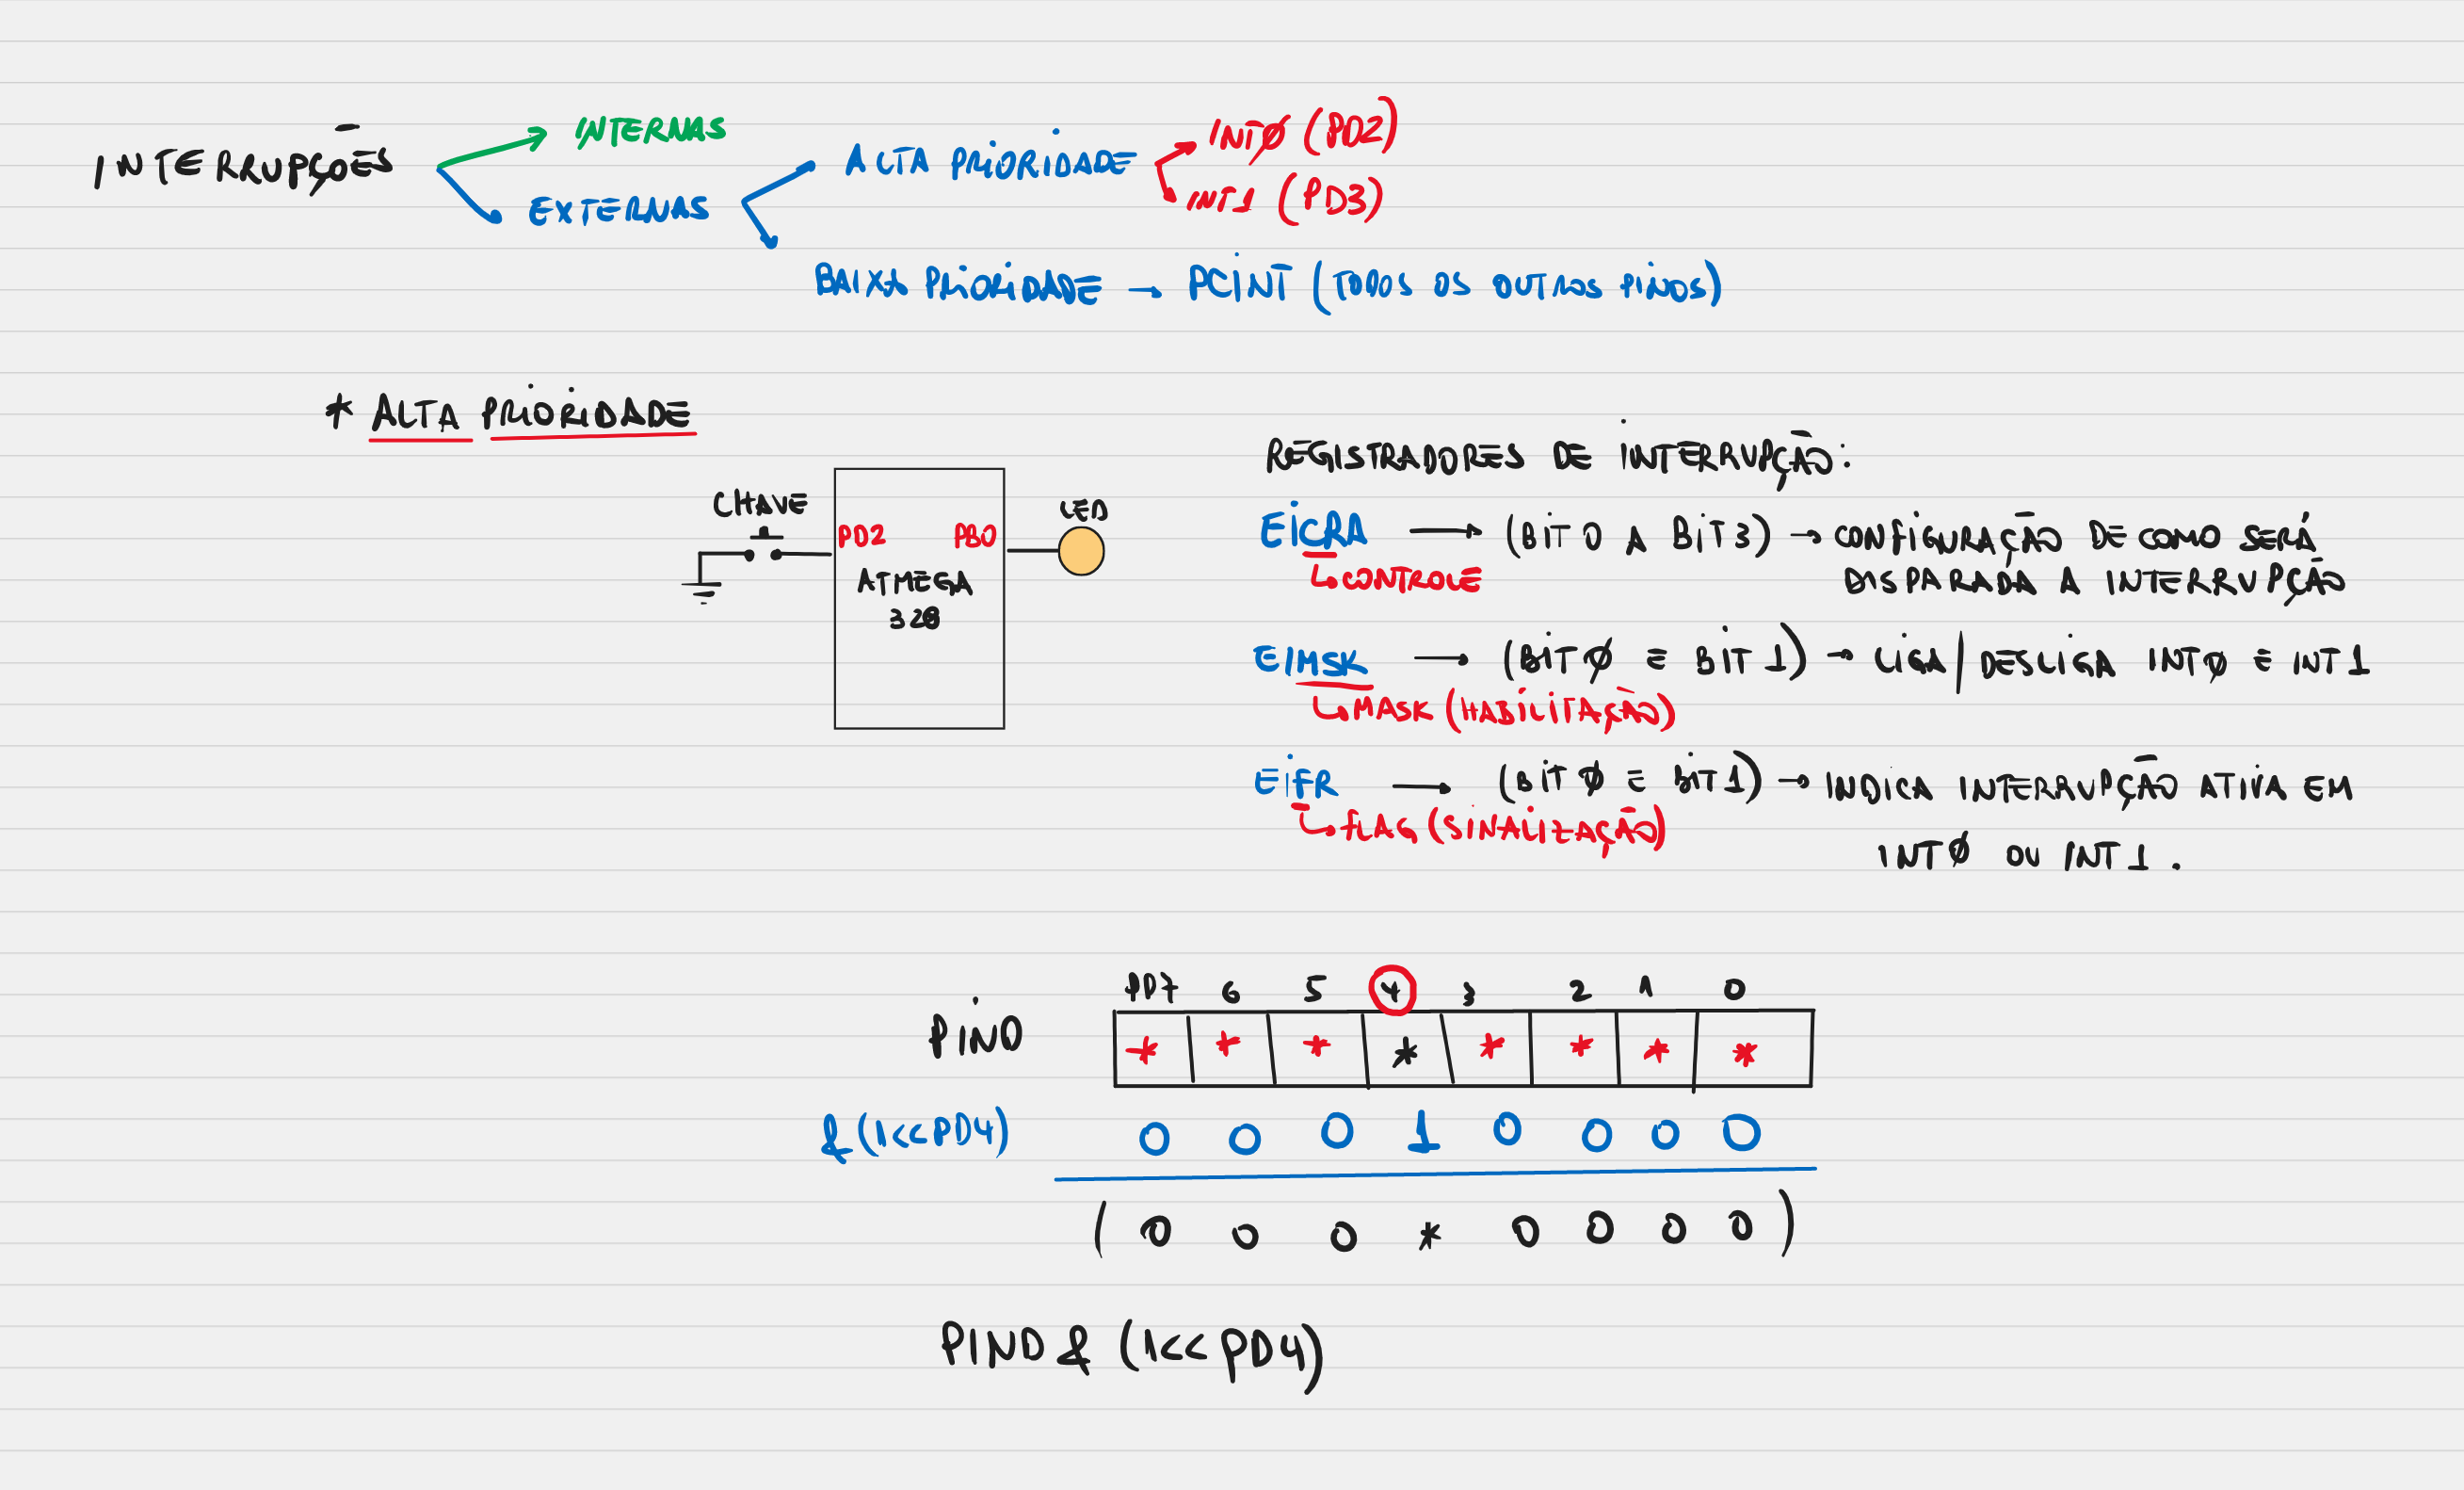 INTERRUPÇÕES
INTERNAS
EXTERNAS
ALTA PRIORIDADE
INTØ (PD2)
INT1 (PD3)
BAIXA PRIORIDADE → PCINT (TODOS OS OUTROS PINOS)
* ALTA PRIORIDADE
CHAVE
PD2
PB0
LED
ATMEGA
328
REGISTRADORES DE INTERRUPÇÃO:
EICRA → (BIT 0 A BIT 3) → CONFIGURAÇÃO DE COMO SERÁ
↳ CONTROLE
DISPARADA A INTERRUPÇÃO
EIMSK → (BIT Ø E BIT 1) → LIGA/DESLIGA INTØ E INT1
↳ MASK (HABILITAÇÃO)
EIFR → (BIT Ø E BIT 1) → INDICA INTERRUPÇÃO ATIVA EM
↳ FLAG (SINALIZAÇÃO)
INTØ OU INT1.
PD7 6 5 4 3 2 1 0
PIND * * * * * * * *
& (1<<PD4) 0 0 0 1 0 0 0 0
( 0 0 0 * 0 0 0 0 )
PIND & (1<< PD4)